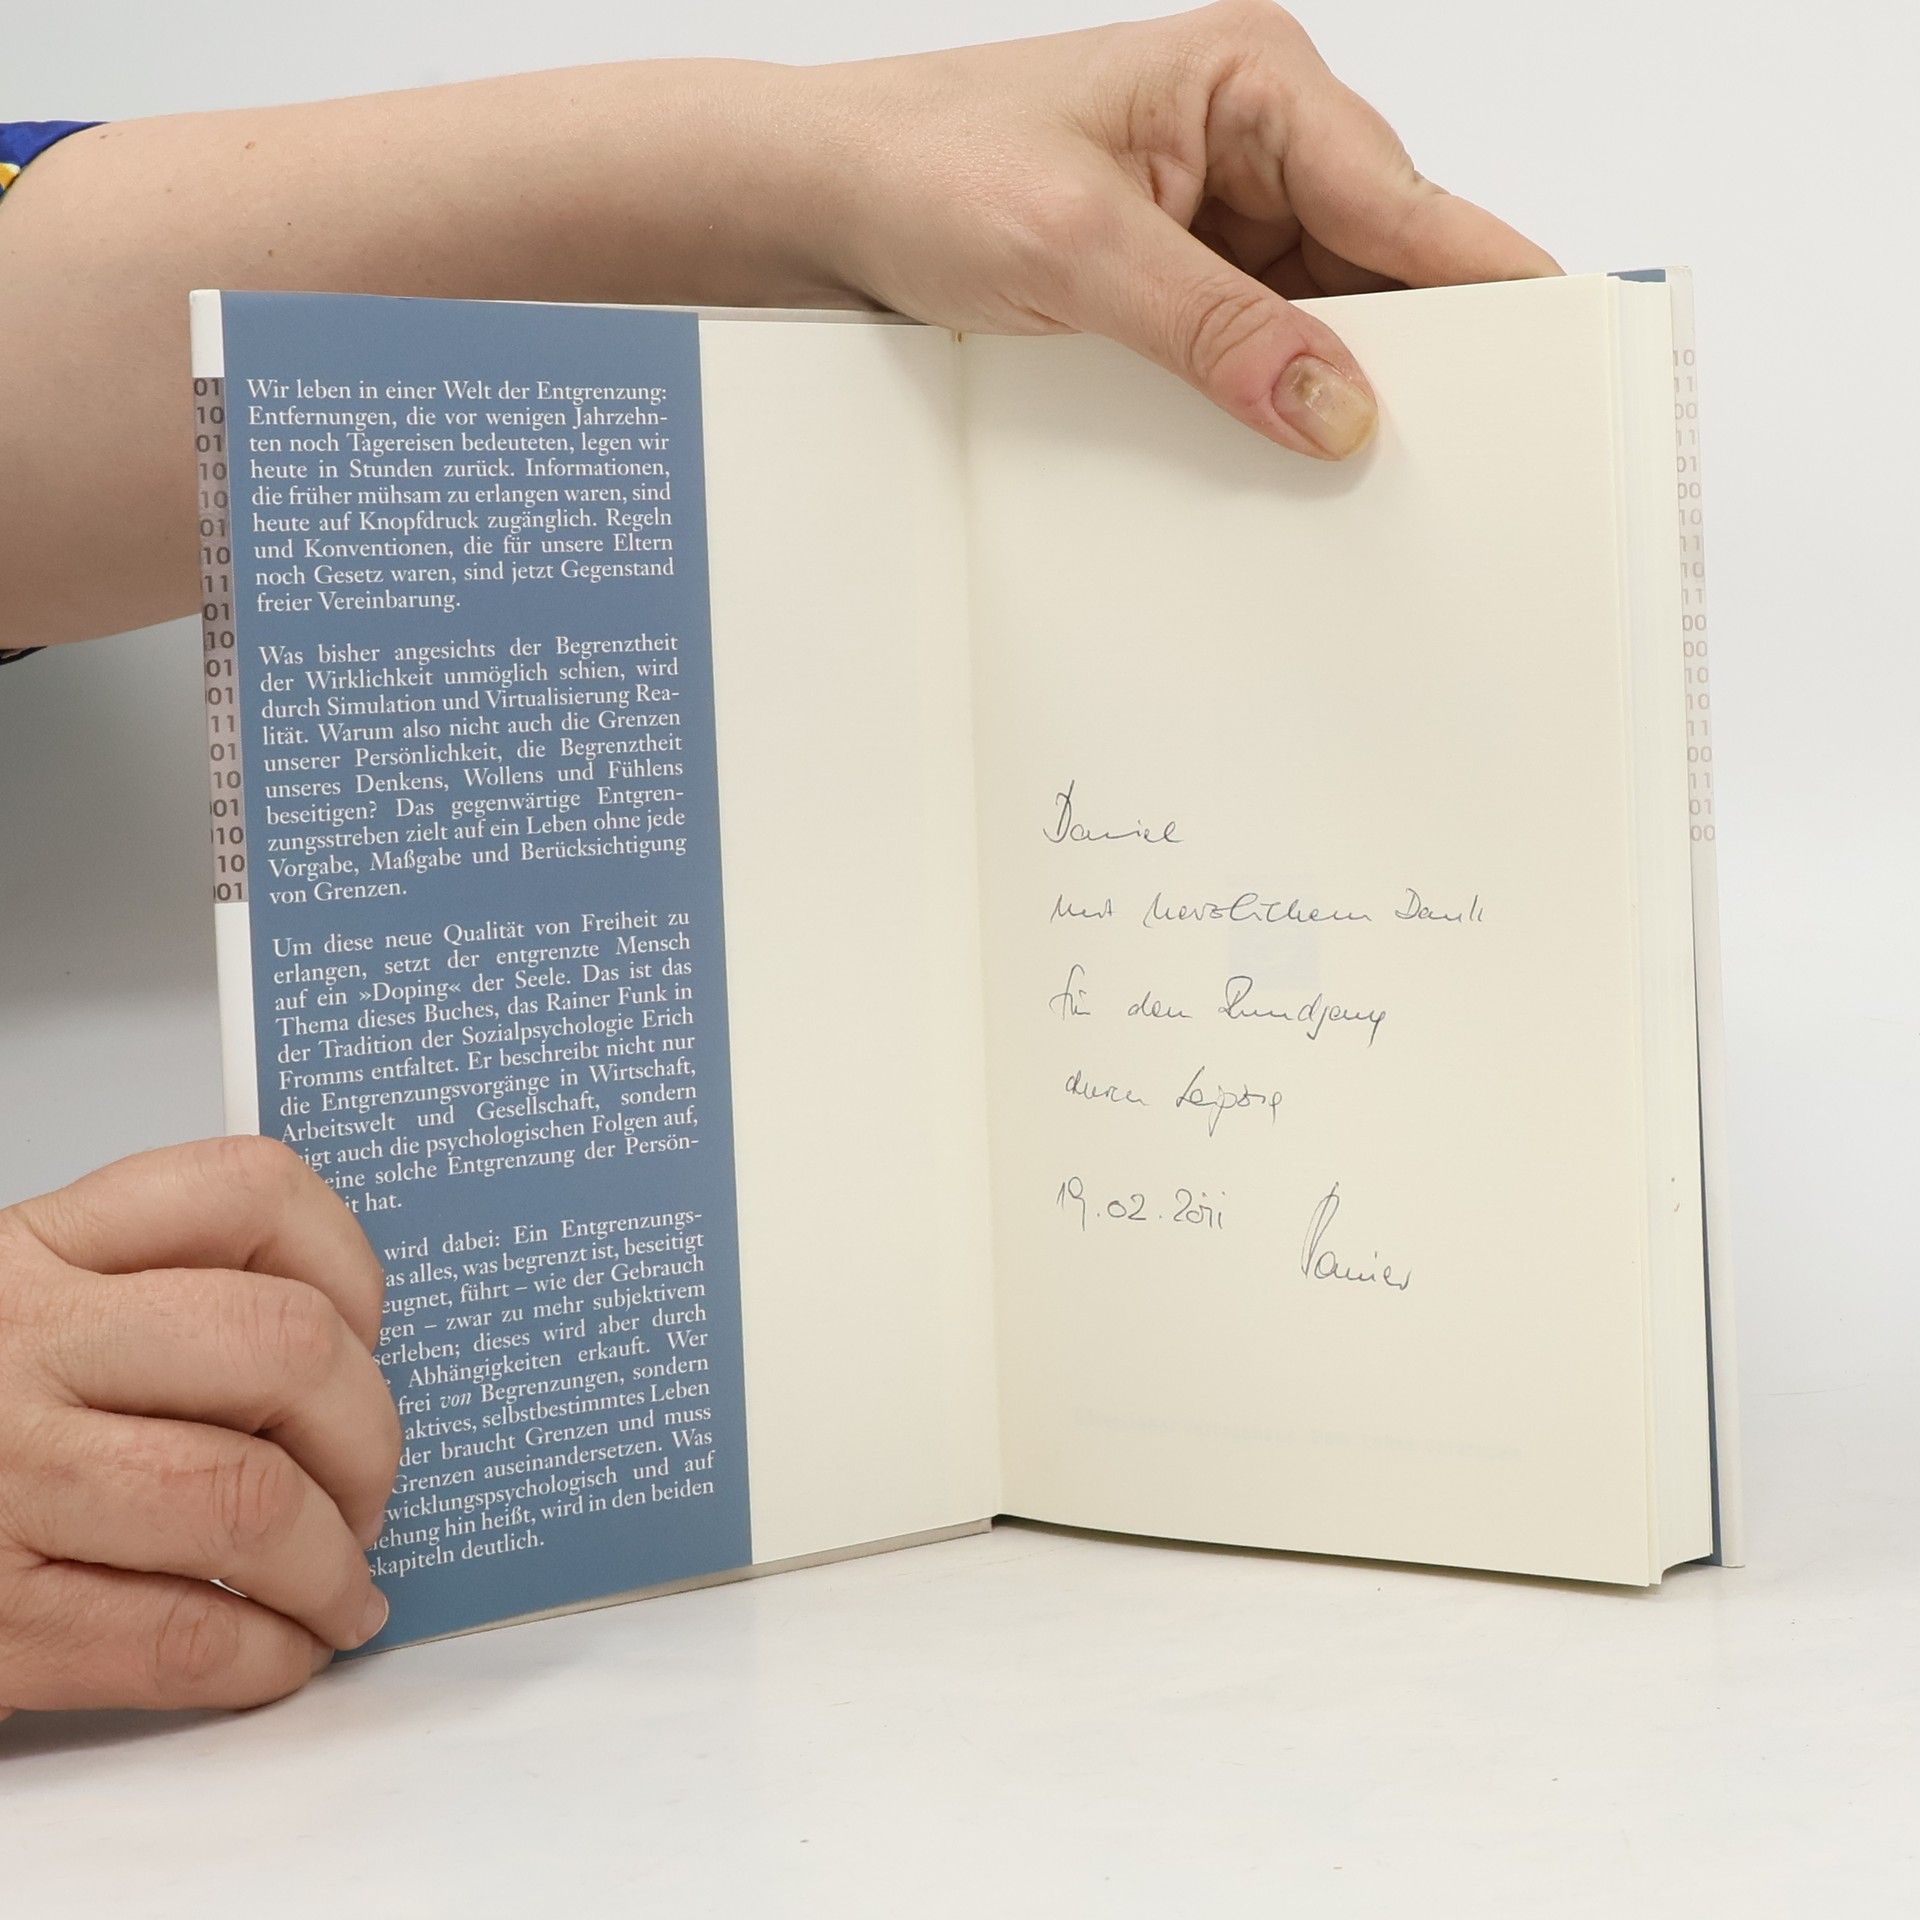 Wir leben in einer Welt der Entgrenzung:
Entfernungen, die vor wenigen Jahrzehn-
ten noch Tagereisen bedeuteten, legen wir
heute in Stunden zurück. Informationen,
die früher mühsam zu erlangen waren, sind
heute auf Knopfdruck zugänglich. Regeln
und Konventionen, die für unsere Eltern
noch Gesetz waren, sind jetzt Gegenstand
freier Vereinbarung.
Was bisher angesichts der Begrenztheit
der Wirklichkeit unmöglich schien, wird
durch Simulation und Virtualisierung Rea-
lität. Warum also nicht auch die Grenzen
unserer Persönlichkeit, die Begrenztheit
unseres Denkens, Wollens und Fühlens
beseitigen? Das gegenwärtige Entgren-
zungsstreben zielt auf ein Leben ohne jede
Vorgabe, Maßgabe und Berücksichtigung
von Grenzen.
Um diese neue Qualität von Freiheit zu
erlangen, setzt der entgrenzte Mensch
auf ein »Doping« der Seele. Das ist das
Thema dieses Buches, das Rainer Funk in
der Tradition der Sozialpsychologie Erich
Fromms entfaltet. Er beschreibt nicht nur
die Entgrenzungsvorgänge in Wirtschaft,
Arbeitswelt und Gesellschaft, sondern
igt auch die psychologischen Folgen auf,
eine solche Entgrenzung der Persön-
it hat.
wird dabei: Ein Entgrenzungs-
as alles, was begrenzt ist, beseitigt
eugnet, führt – wie der Gebrauch
gen – zwar zu mehr subjektivem
serleben; dieses wird aber durch
Abhängigkeiten erkauft. Wer
frei von Begrenzungen, sondern
aktives, selbstbestimmtes Leben
der braucht Grenzen und muss
Grenzen auseinandersetzen. Was
wicklungspsychologisch und auf
ehung hin heißt, wird in den beiden
skapiteln deutlich.
Daniel
mit herzlichem Dank
für den Rundgang
durch Leipzig
19.02.2011
Rainer